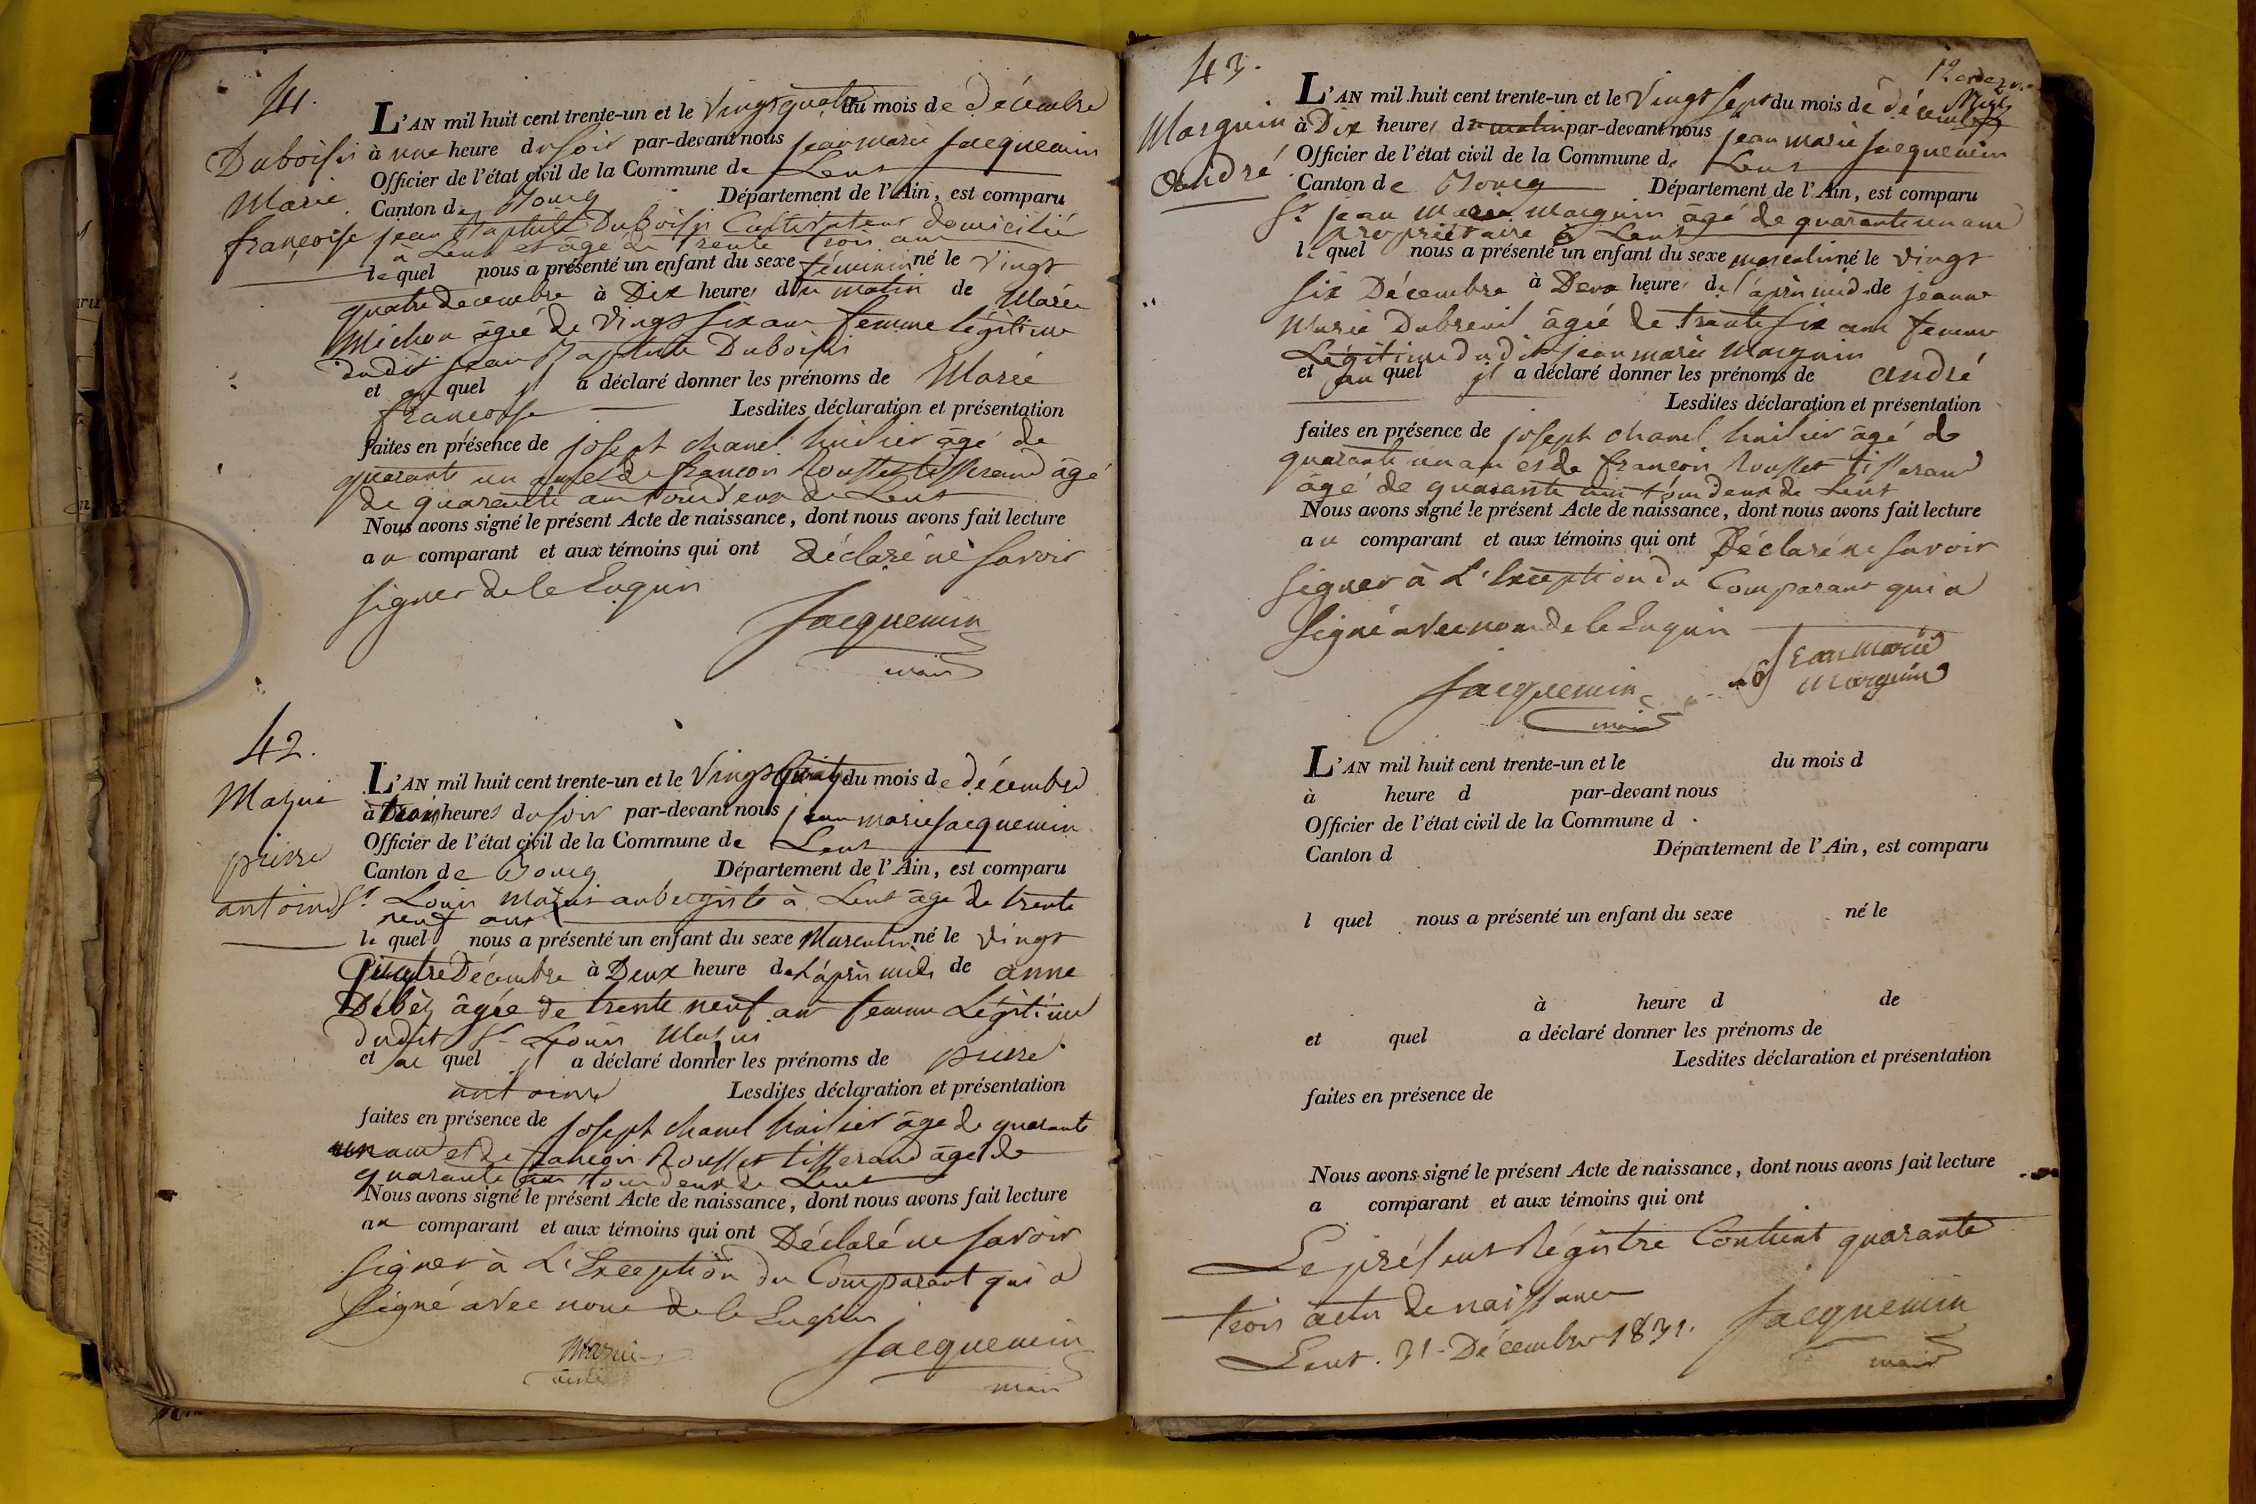 41.
Duboisis
Marie
françoise
L'AN mil huit cent trente-un et le Vingt quatre du mois de décembre
à une heure du soir par-devant nous jean marie jacquemin
Officier de l'état civil de la Commune de Lent
Canton de Bourg Département de l'Ain, est comparu
jean Baptiste Duboisis Cultivateur domicilié
à Lent et âgé de trente trois ans
lequel nous a présenté un enfant du sexe féminin né le Vingt
quatre décembre à Dix heures du matin de Marie
Michon âgée de Vingt six ans femme légitime
dudit jean Baptiste Duboisis
et au quel il a déclaré donner les prénoms de Marie
françoise Lesdites déclaration et présentation
faites en présence de joseph chanel huilier âgé de
quarante un ans et de françois Rousset tisserand âgé
de quarante ans tous deux de Lent
Nous avons signé le présent Acte de naissance, dont nous avons fait lecture
au comparant et aux témoins qui ont Déclaré ne savoir
signer de ce Enquis
Jacquemin
maire
42.
Mazui
pierre
antoine
L'AN mil huit cent trente-un et le Vingt quatre du mois de décembre
à trois heures du soir par-devant nous jean marie jacquemin
Officier de l'état civil de la Commune de Lent
Canton de Bourg Département de l'Ain, est comparu
Sr Louis Mazui aubergiste à Lent âgé de trente
neuf ans
le quel nous a présenté un enfant du sexe Masculin né le Vingt
quatre Décembre à Deux heure de L'après midi de anne
âgée de trente neuf ans femme Légitime
dudit Sr Louis Mazui
et au quel il a déclaré donner les prénoms de pierre
antoine Lesdites déclaration et présentation
faites en présence de joseph chanel huilier âgé de quarante
un ans et de françois Rousset tisserand âgé de
quarante ans tous deux de Lent
Nous avons signé le présent Acte de naissance, dont nous avons fait lecture
au comparant et aux témoins qui ont Déclaré ne savoir
signer à L'Exception du Comparant qui a
signé avec nous de ce Enquis
Mazui
Jacquemin
maire
43.
Marguin
andré
L'AN mil huit cent trente-un et le Vingt sept du mois de décembre
à Dix heures du matin par-devant nous jean marie jacquemin
Officier de l'état civil de la Commune de Lent
Canton de Bourg Département de l'Ain, est comparu
Sr jean Marie Marguin âgé de quarante un ans
propriétaire à Lent
le quel nous a présenté un enfant du sexe masculin né le vingt
six Décembre à Deux heures de l'après midi de jeanne
Marie Dubreuil âgée de trente six ans femme
Légitime du dit jean marie Marguin
et au quel il a déclaré donner les prénoms de andré
Lesdites déclaration et présentation
faites en présence de joseph chanel huilier âgé de
quarante un ans et de françois Rousset tisserand
âgé de quarante ans tous deux de Lent
Nous avons signé le présent Acte de naissance, dont nous avons fait lecture
au comparant et aux témoins qui ont Déclaré ne savoir
signer à L'Exception du Comparant qui a
signé avec nous de ce Enquis
Jean Marie
Marguin
Jacquemin
maire
L'AN mil huit cent trente-un et le du mois d
à heure d par-devant nous
Officier de l'état civil de la Commune d
Canton d Département de l'Ain, est comparu
l quel nous a présenté un enfant du sexe né le
à heure d de
et quel a déclaré donner les prénoms de
Lesdites déclaration et présentation
faites en présence de
Nous avons signé le présent Acte de naissance, dont nous avons fait lecture
a comparant et aux témoins qui ont
Le présent Régistre Contient quarante
trois actes de naissance
Lent. 31 Décembre 1831.
Jacquemin
maire